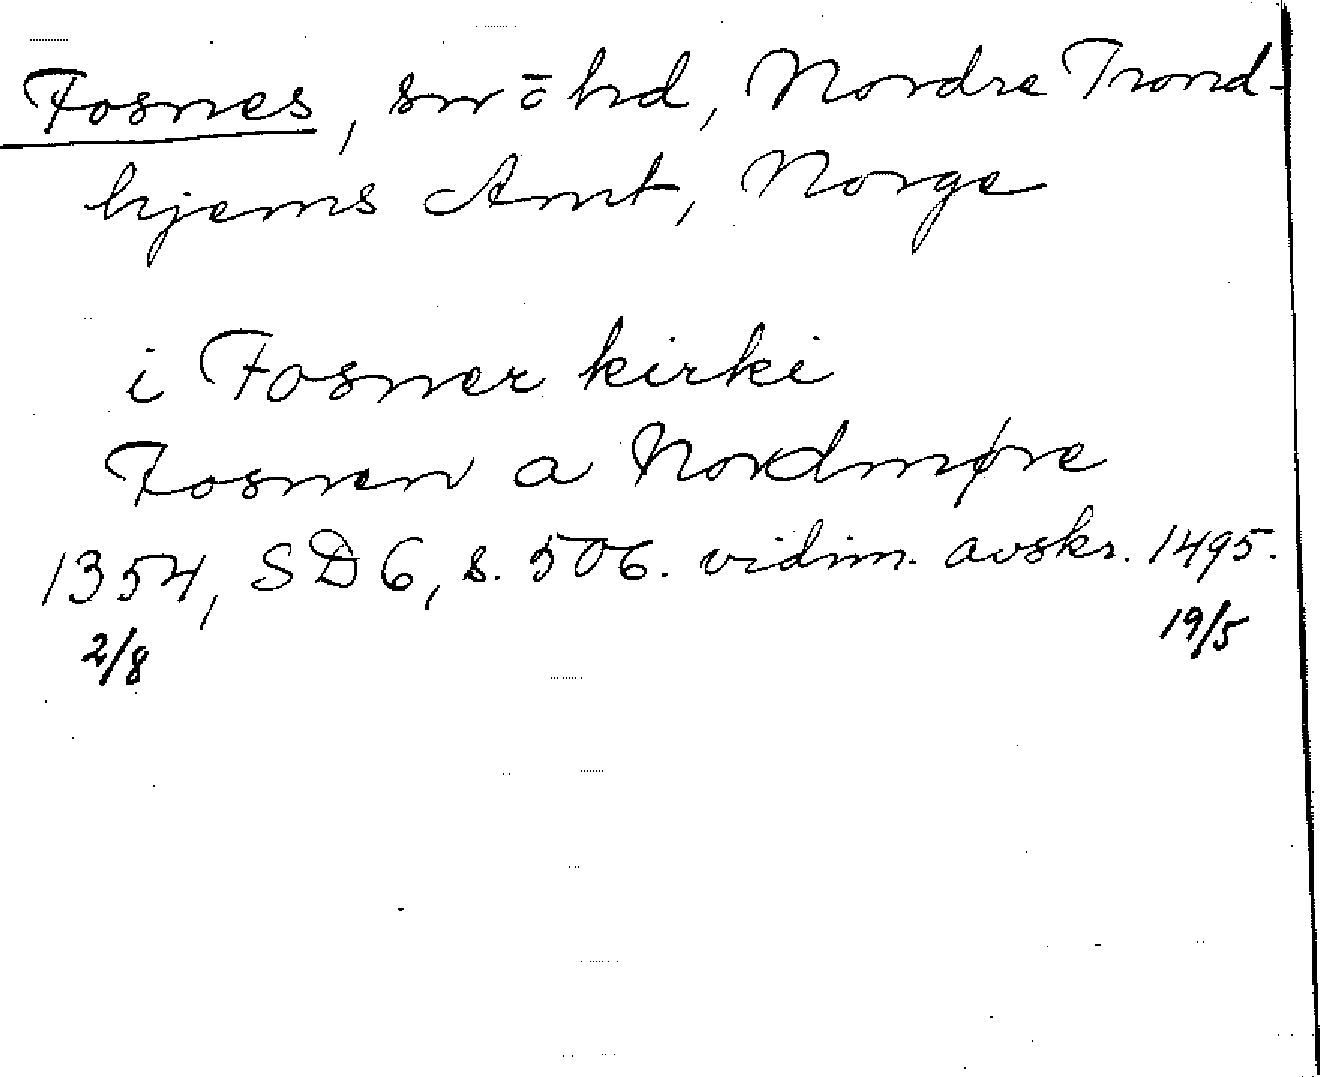 Fosnes, sn o hd, Nordre Trond-
hjems Amt, Norge
i Fosner kirki
Fosnen a Nordmøre
1354, SD 6, s. 506. vidim. avskr. 1495.
2/8 19/5